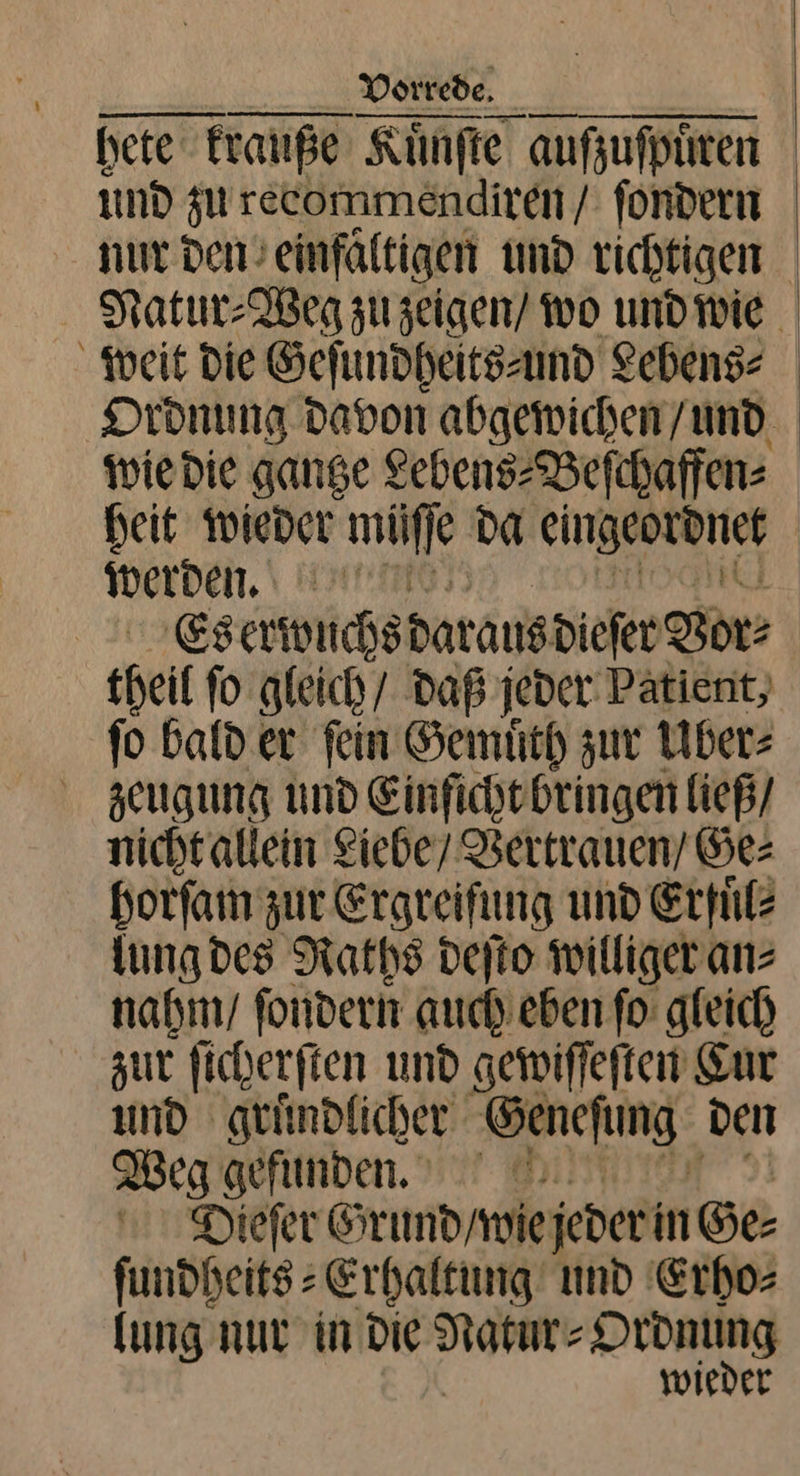 Vorrede.
hete krauße Kuͤnſte aufzuſpuͤren
und zu recommendiren / ſondern
nur den einfaͤltigen und richtigen
Natur⸗Weg zu zeigen / wo und wie
weit die Geſundheits⸗und Lebens⸗
Ordnung davon abgewichen / und
wie die gantze Lebens⸗Beſchaffen⸗
heit wieder müſſe da eingeordnet
werden.
Es erwuchs daraus dieſer Vor⸗
theil ſo gleich / daß jeder Patient,
ſo bald er ſein Gemuͤth zur Uber⸗
zeugung und Einſicht bringen ließ /
nicht allein Liebe / Vertrauen / Ge⸗
horſam zur Ergreifung und Erfuͤl⸗
lung des Raths deſto williger an⸗
nahm / ſondern auch eben ſo gleich
zur ſicherſten und gewiſſeſten Cur
und gruͤndlicher Geneſung den
Weg gefunden.
Dieſer Grund / wie jeder in Ge⸗
ſundheits⸗Erhaltung und Erho⸗
lung nur in die Natur⸗Ordnung
wieder